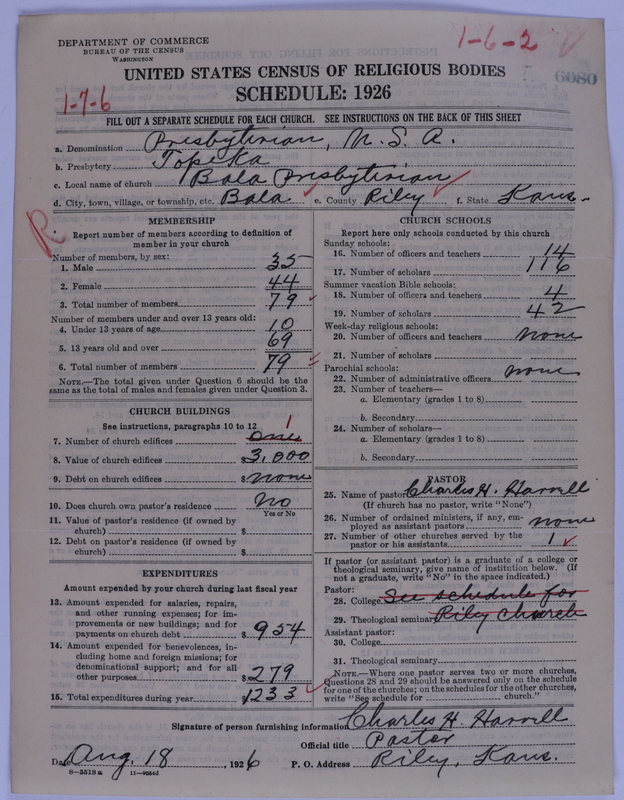 DEPARTMENT OF COMMERCE
BUREAU OF THE CENSUS
WASHINGTON
1-6-2
6080
UNITED STATES CENSUS OF RELIGIOUS BODIES
1-7-6
SCHEDULE: 1926
FILL OUT A SEPARATE SCHEDULE FOR EACH CHURCH. SEE INSTRUCTIONS ON THE BACK OF THIS SHEET
a. Denomination Presbyterian, U. S. A.
b. Presbytery Topeka
c. Local name of church Bala Presbyterian
d. City, town, village, or township, etc. Bala e. County Riley f. State Kans.
R
MEMBERSHIP
Report number of members according to definition of
member in your church
Number of members, by sex:
1. Male 35
2. Female 44
3. Total number of members 79
Number of members under and over 13 years old:
4. Under 13 years of age 10
5. 13 years old and over 69
6. Total number of members 79
NOTE.—The total given under Question 6 should be
same as the total of males and females given under Question 3.
CHURCH BUILDINGS
See instructions, paragraphs 10 to 12
1
7. Number of church edifices one
8. Value of church edifices $3,000
9. Debt on church edifices $none
10. Does church own pastor's residence No
Yes or No
11. Value of pastor's residence (if owned by
church) $
12. Debt on pastor's residence (if owned by
church) $
EXPENDITURES
Amount expended by your church during last fiscal year
13. Amount expended for salaries, repairs,
and other running expenses; for im-
provements or new buildings; and for
payments on church debt $954
14. Amount expended for benevolences, in-
cluding home and foreign missions; for
denominational support; and for all
other purposes $279
15. Total expenditures during year $1233
CHURCH SCHOOLS
Report here only schools conducted by this church
Sunday schools:
16. Number of officers and teachers 14
17. Number of scholars 116
Summer vacation Bible schools:
18. Number of officers and teachers 4
19. Number of scholars 42
Week-day religious schools:
20. Number of officers and teachers none
21. Number of scholars
Parochial schools:
22. Number of administrative officers none
23. Number of teachers—
a. Elementary (grades 1 to 8)
b. Secondary
24. Number of scholars—
a. Elementary (grades 1 to 8)
b. Secondary
PASTOR
25. Name of pastor Charles H. Harrell
(If church has no pastor, write "None")
26. Number of ordained ministers, if any, em-
ployed as assistant pastors none
27. Number of other churches served by the
pastor or his assistants 1
If pastor (or assistant pastor) is a graduate of a college or
theological seminary, give name of institution below. (If
not a graduate, write "No" in the space indicated.)
Pastor:
28. College See schedule for
29. Theological seminary Riley church
Assistant pastor:
30. College
31. Theological seminary
NOTE.—Where one pastor serves two or more churches,
Questions 28 and 29 should be answered only on the schedule
for one of the churches; on the schedules for the other churches,
write "See schedule for church."
Signature of person furnishing information Charles H. Harrell
Official title Pastor
Date Aug. 18, 1926 P. O. Address Riley, Kans.
8—3518 a